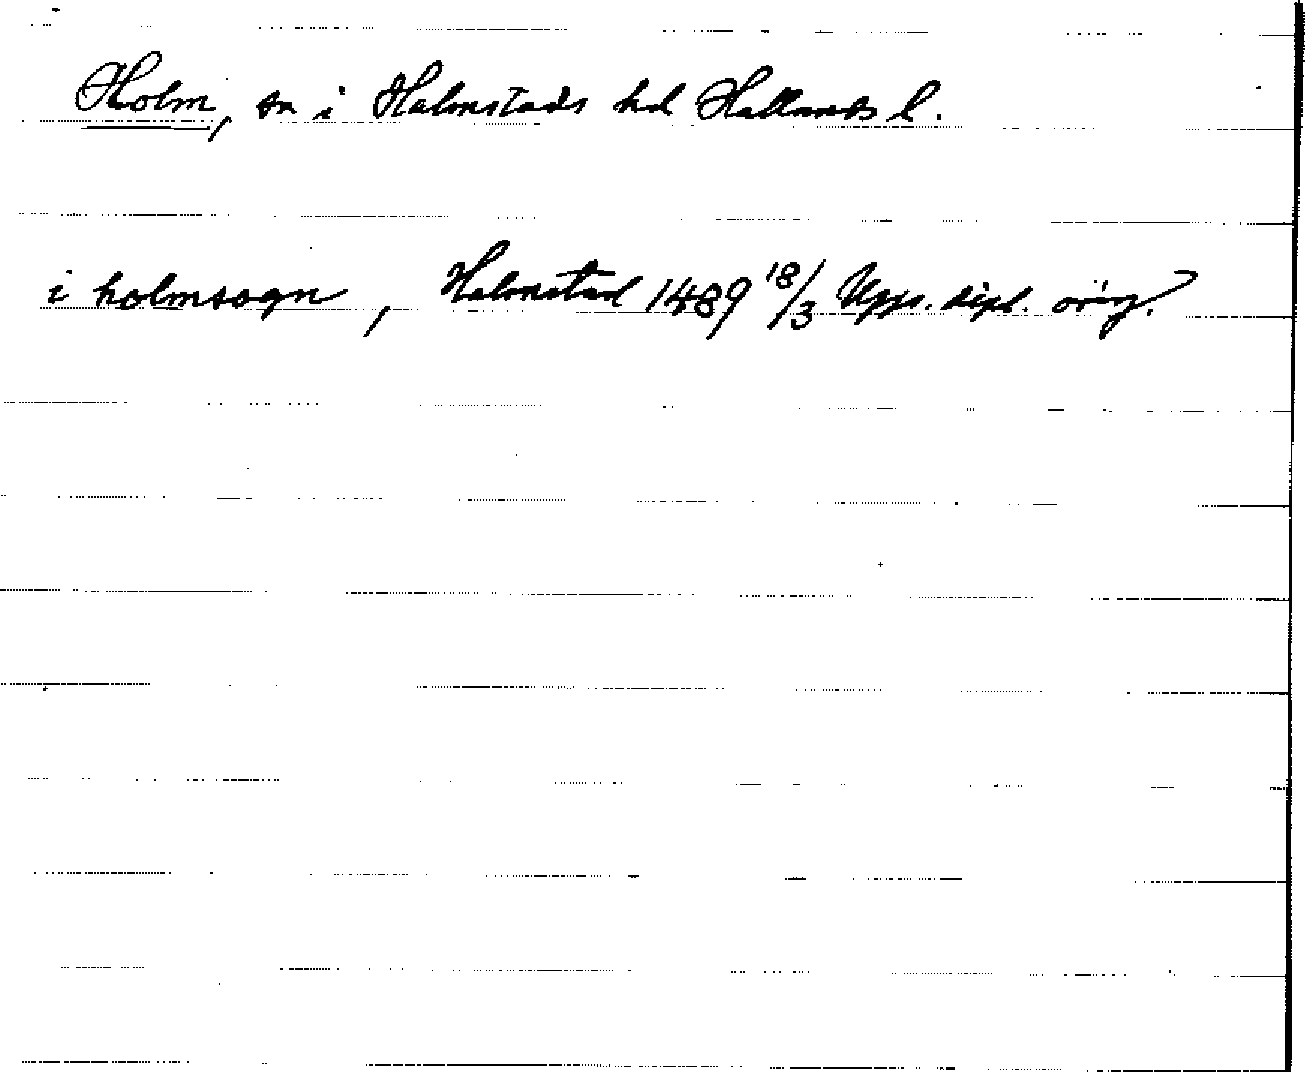 Holm, sn i Halmstads hd Hallands l.
i holmsogn, Halmstad 1489 18/3 Upps. dipl. orig.